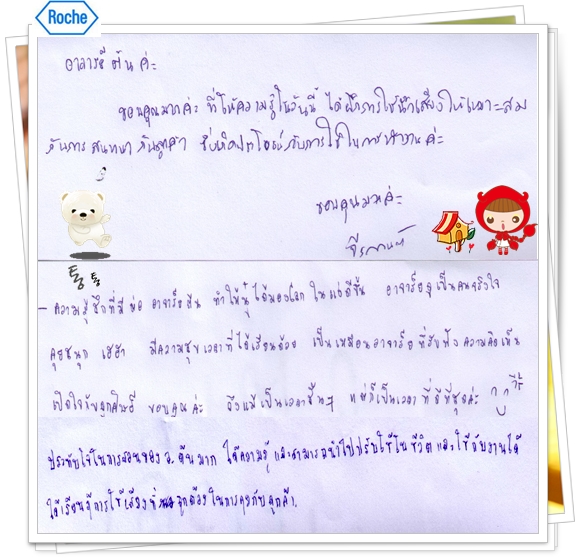 Roche
อาจารย์ ต้น ค่ะ
ขอบคุณมากค่ะ ที่ให้ความรู้ในวันนี้ ได้ฝึกการใช้น้ำเสียงให้เหมาะสม
กับการ สนทนา กับลูกค้า ซึ่งเกิดประโยชน์กับการใช้ในการทำงานค่ะ
ขอบคุณมากค่ะ
통 통
- ความรู้สึกที่มีต่อ อาจารย์ต้น ทำให้หนูได้มองโลก ในแง่ดีขึ้น อาจารย์ดูเป็นคนจริงใจ
คุยสนุก เฮฮา มีความสุขเวลาที่ได้เรียนด้วย เป็นเหมือนอาจารย์ที่รับฟังความคิดเห็น
เปิดใจกับลูกศิษย์ ขอบคุณค่ะ ถึงแม้เป็นเวลาสั้นๆ แต่ก็เป็นเวลาที่ดีที่สุดค่ะ
ประทับใจในการสอนของ อ.ต้นมาก ได้ความรู้ และสามารถนำไปปรับใช้ในชีวิต และใช้กับงานได้
ได้เรียนรู้การใช้เสียงที่ถูกต้องในการคุยกับลูกค้า.